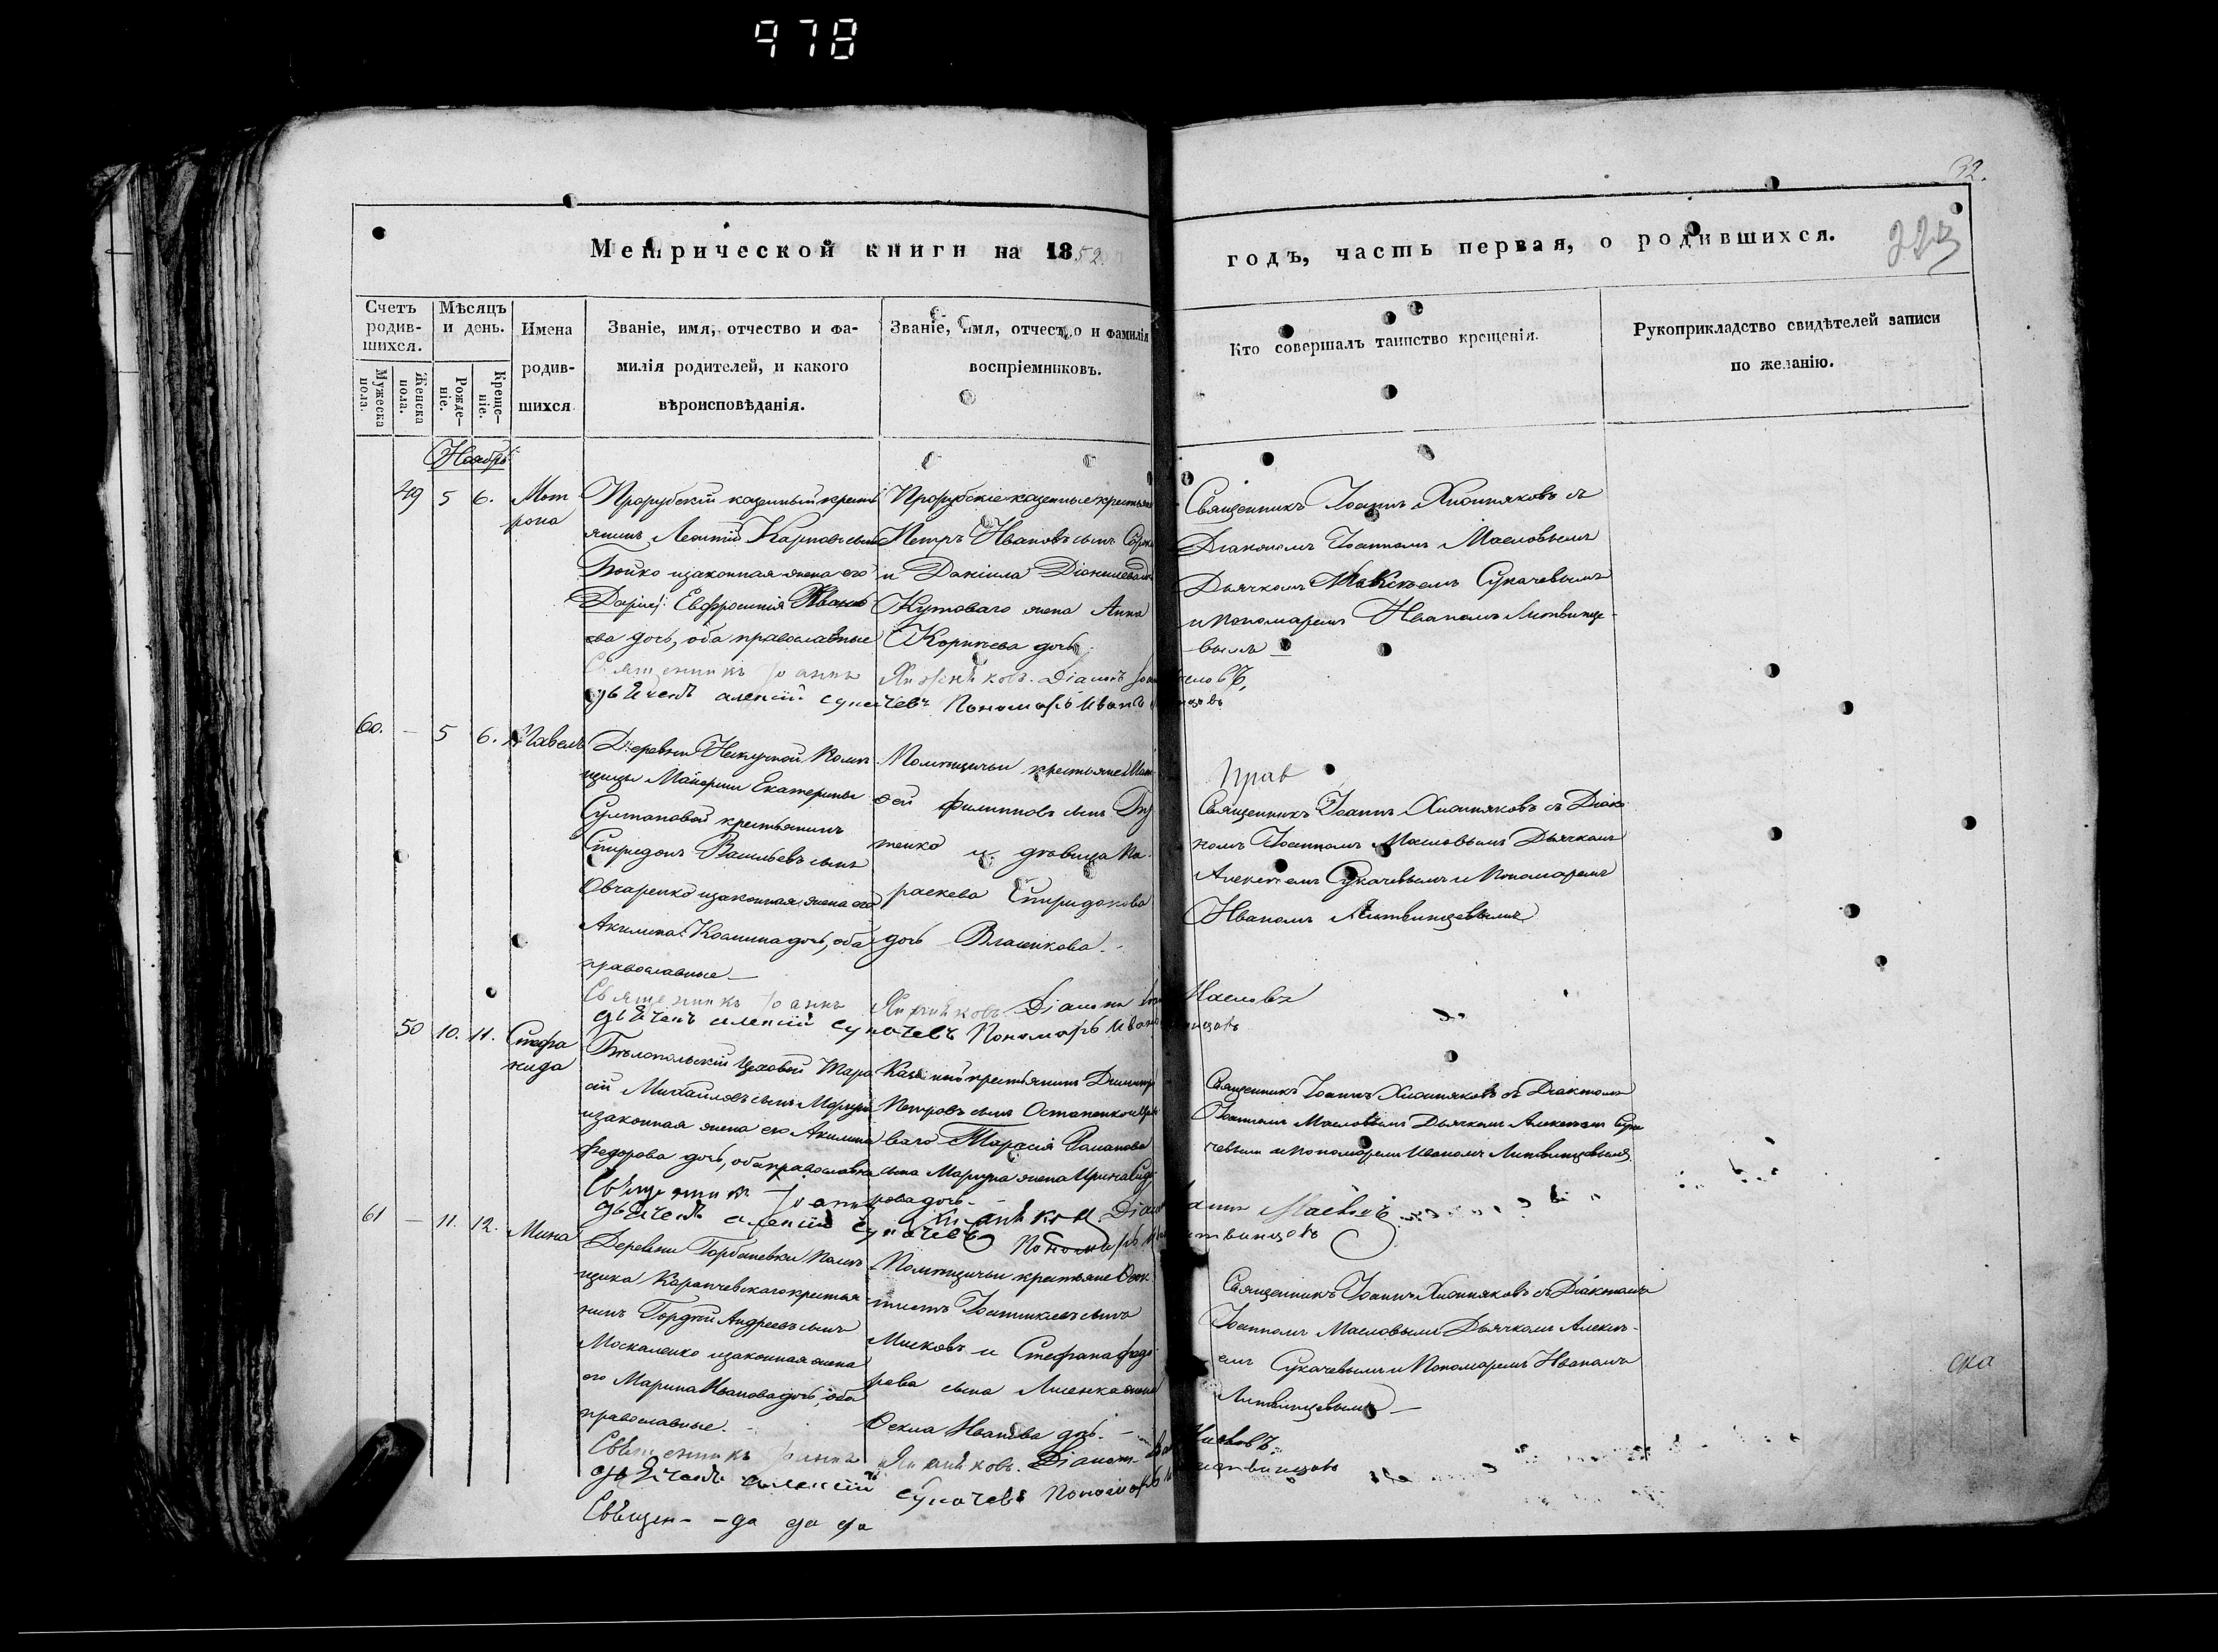 978
32.
Метрической книги на 1852
годъ, часть первая, о родившихся.
223
Счетъ родившихся.
Мужеска пола.
Женска пола.
Мѣсяцъ и день.
Рожденіе.
Крещеніе.
Имена
родив-
шихся
Званіе, имя, отчество и фа-
милія родителей, и какого
вѣроисповѣданія.
Званіе, имя, отчество и фамилія
воспріемниковъ.
Кто совершалъ таинство крещенія.
Рукоприкладство свидѣтелей записи
по желанію.
Ноябрь
49 5 6. Мот
рона
Прорубскій казенный кресть
янинъ Леонтій Карповъ сынъ
Бойко изаконная жена его
Евфросинія Иванο
ва дочь, оба православные
Прорубскіе казенные крестьяне
Петръ Ивановъ сынъ
и Даніила
Кутоваго жена Анна
дочь
Священникъ Іоаннъ Хижняковъ съ
Діакономъ Іоанномъ Масловымъ
Дьячкомъ Алексѣемъ Сукачевымъ
и Пономаремъ Иваномъ Литвинце-
вымъ
Священникъ Іоаннъ Хижняковъ. Діаконъ
дьячекъ алексій сукачевъ Пономарь Иванъ
60. – 5 6. Павелъ
Деревни Помѣ
щицы Маіорши Екатерины
Султановой крестьянинъ
Спиридонъ Васильевъ сынъ
Овчаренко изаконная жена его
Акилина Козмина дочь, оба
православные
Помѣщичьи крестьяне
Филиповъ сынъ
тенко и дѣвица Па-
раскева Спиридонова
дочь Власенкова.
Священникъ Іоаннъ Хижняковъ съ Діако
номъ Іоанномъ Масловымъ Дьячкомъ
Алексѣемъ Сукачевымъ и Пономаремъ
Иваномъ Литвинцевымъ
Священникъ Іоаннъ Хижняковъ. Діаконъ Масловъ
дьячекъ алексій сукачевъ Пономарь Иванъ
50 10. 11. Стефа
нида
Бѣлопольскій Цеховой Тара
сій Михайловъ сынъ
изаконная жена его Акилина
Федорова дочь, оба православные
крестьянинъ Димитрій
Петровъ сынъ Остапенко
Тарасія Романова
сына жена Ирина
дочь
Священникъ Іоаннъ Хижняковъ съ Діакономъ
Іоанномъ Масловымъ Дьячкомъ Алексѣемъ Сука
чевымъ и Пономаремъ Иваномъ Литвинцевымъ
Священникъ Іоаннъ Хижняковъ Масловъ
дьячекъ алексій сукачевъ Пономарь
61 – 11. 12. Мина
Деревни Горбаневки Помѣ
щика Карпачевскаго крестья
нинъ Гордій Андреевъ сынъ
Москаленко изаконная жена
его Марина Иванова дочь, оба
православные.
Помѣщичьи крестьяне
сынъ
и Стефана Федо
рова сына Лисенка жена
Ѳекла Иванова дочь.
Священникъ Іоаннъ Хижняковъ съ Діакономъ
Іоанномъ Масловымъ Дьячкомъ Алексѣ-
емъ Сукачевымъ и Пономаремъ Иваномъ
Литвинцевымъ
ска
Священникъ Іоаннъ Хижняковъ. Діаконъ
дьячекъ алексій сукачевъ Пономарь